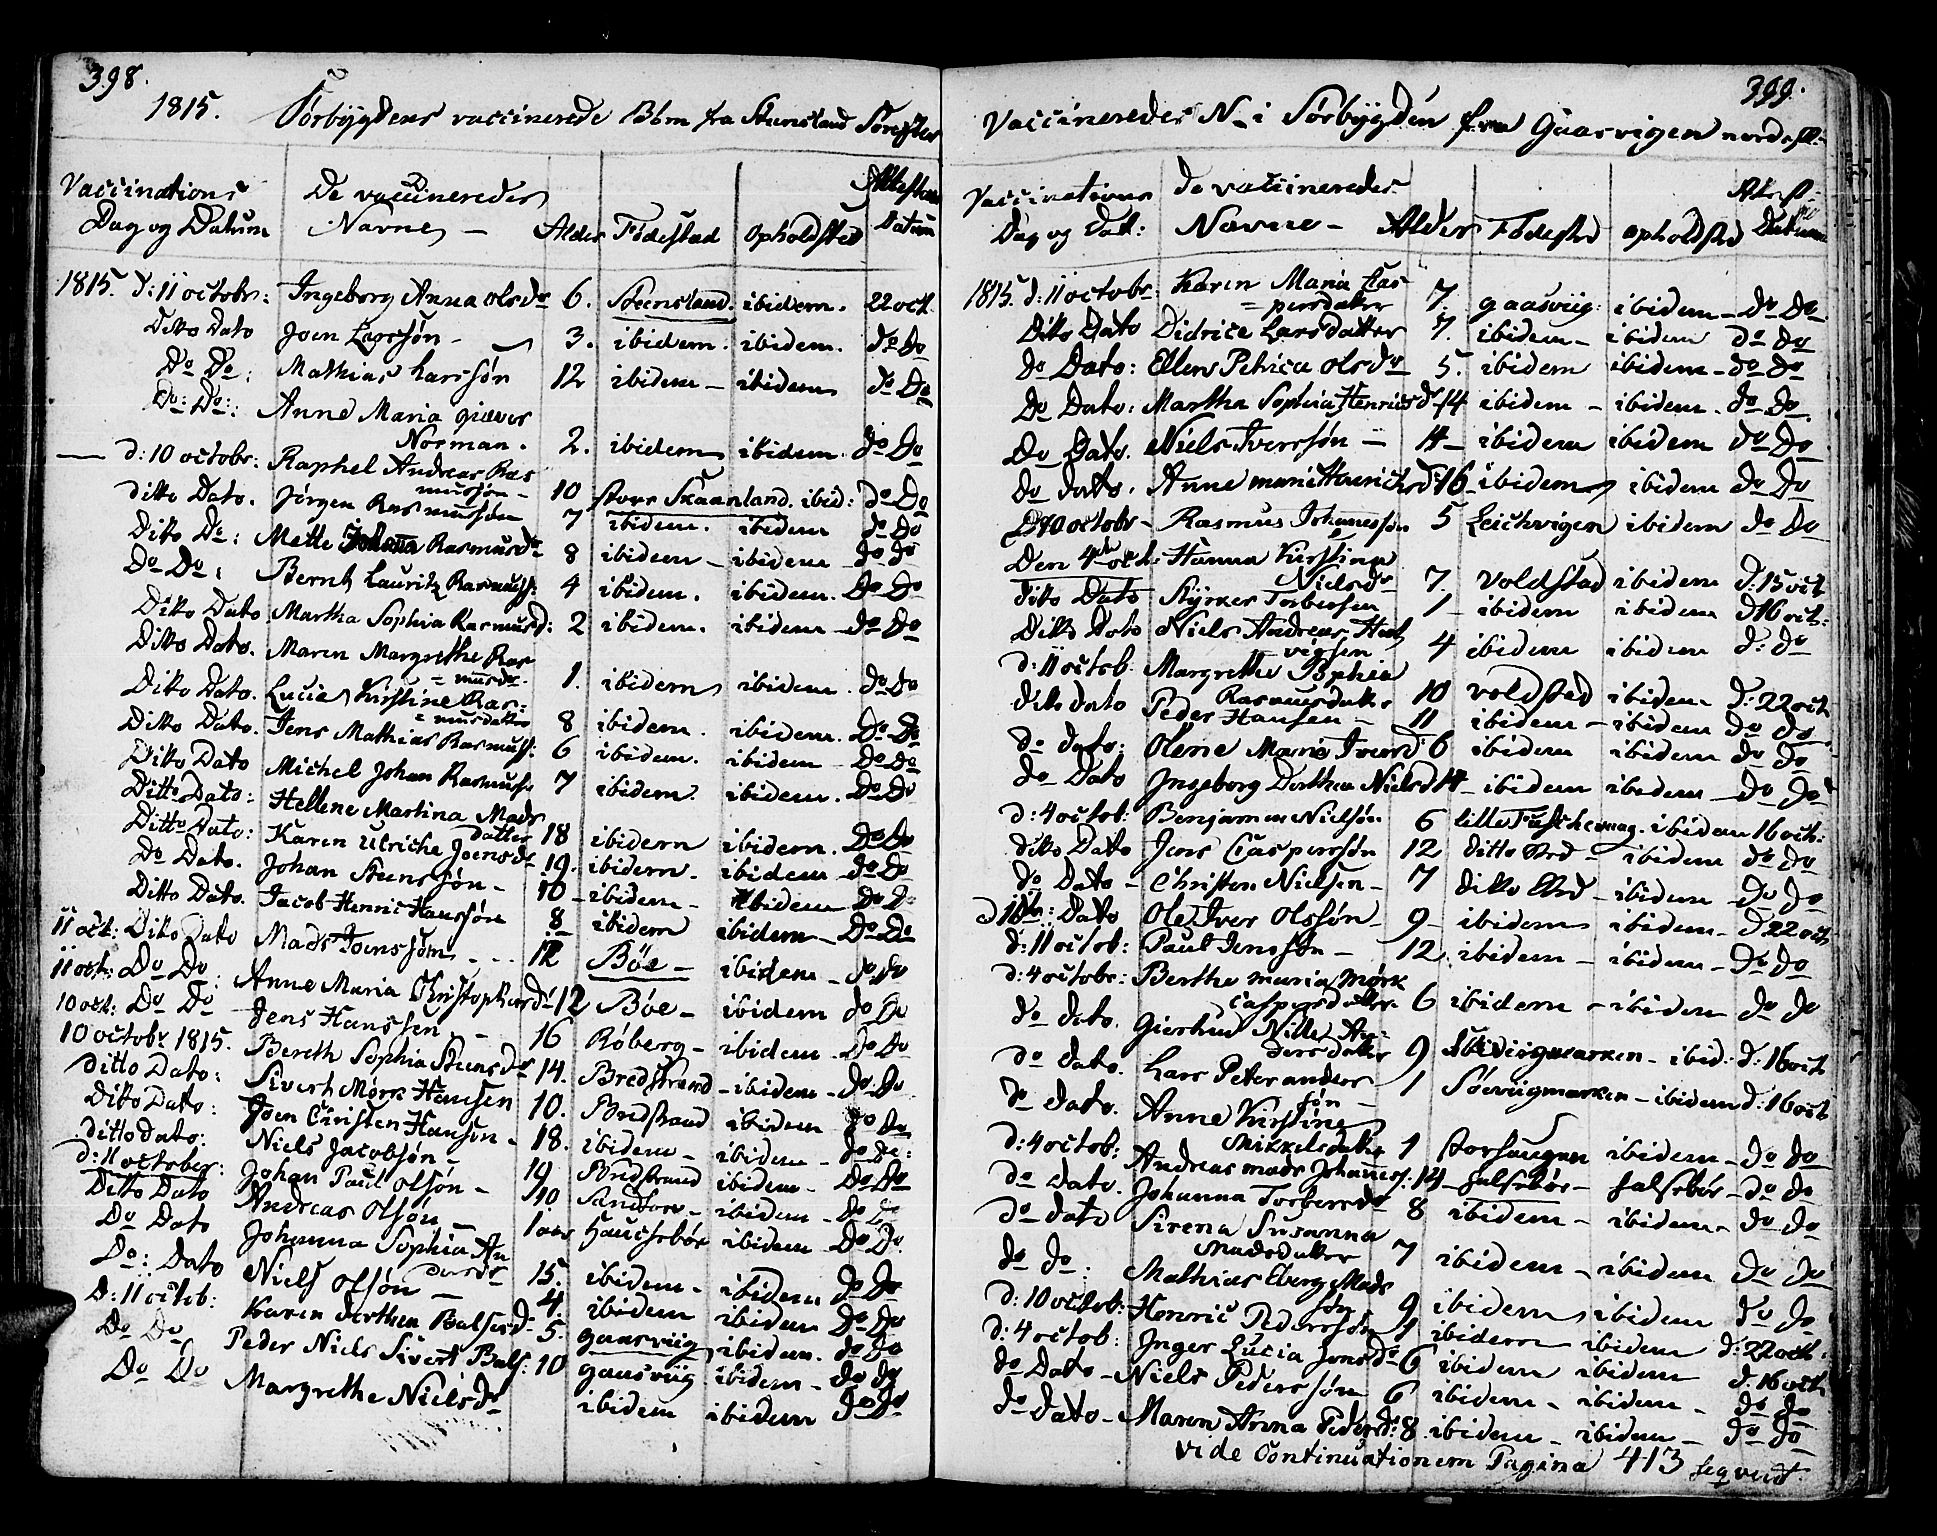 398.
1815. Sørbÿgdens vaccinerede Børn fra Steensland
Vaccinations Dag og Datum De vaccineredes Navne Alder Fødestad Opholdsted Attestens Datum
1815. d: 11 octobr: Ingeborg Anna olsdr 6. Steensland. ibidem. 22 oct.
Ditto Dato Joen Larssøn 3. ibidem. ibidem. do Do
Do Do: Mathias Larssøn 12 ibidem ibidem do Do
Do: Do: Anne Maria Giæver
Norman. 2. ibidem ibidem. do Do
d: 10 octobr: Raphel Andreas Ras
mussøn 10 store Skaanland. ibid: do Do
ditto Dato. Jørgen Rasmussøn 7 ibidem. ibidem do Do
Ditto Do: Mette Johanna Rasmusdr 8 ibidem ibidem do do
Do Do: Bernt Lauritz Rasmuss: 4 ibidem. ibidem. Do Do
Ditto Dato Martha Sophia Rasmusd: 2 ibidem. ibidem Do Do
Ditto Dato. Maren Margrethe Ras
= musdr. 1. ibidem ibidem. do Do
Ditto Dato. Lucie Kirstine Ras=
= musdatter 8 ibidem. ibidem. Do Do
Ditto Dato. Jens Mathias Rasmuss: 6 ibidem. ibidem Do Do
Ditto Dato Michel Johan Rasmuss 7 ibidem. ibidem. Do Do
Ditto Dato: Hellene Martina Mads
datter 18 ibidem ibidem. Do Do
Ditto Dato: Karen Ulriche Joensdr 19. ibidem. ibidem do Do
Do Dato. Johan Steenssøn 10 ibidem ibidem Do Do
Ditto Dato. Jacob Henric Hanssøn 8 ibidem ibidem Do Do
11 oct: Ditto Dato Mads Joenssøn 12 Bøe ibidem do Do
11 oct: Do Do: Anne Maria Christophersd: 12 Bøe ibidem do Do
10 oct: Do Do Jens Hanssen 16 Røberg ibidem. Do Do
10 octobr 1815. Bereth Sophia Steensdr 14. Bredstrand ibidem. Do. Do
ditto Dato: Sivert Mørk Hansen 10. Bredstrand ibidem do Do
Ditto Dato: Joen Christen Hanson 18. ibidem ibidem. do Do:
ditto dato. Niels Jacobsøn 19 Bredstrand ibidem Do Do
d: 11 october: Johan Paul Olsøn 10. Sandtorv ibidem Do Do
Ditto Dato Andreas Olsøn 1 aar Haucsebøe ibidem Do Do.
Do Dato Johanna Sophia An
dersdr 15. ibidem ibidem do Do
Do: Dato Niels Olsøn 4. ibidem ibidem Do Do
D: 11 octob: Karen Dorthea Balsersd: 5. gaasviig ibidem. do Do
Do Do Peder Niels Sivert Bals: 10 gaasviig ibidem do do
Do Do Margrethe Nielsdr ibidem ibidem do Do
399.
Vaccineredes N. i Sørbÿgden fra Gaasvigen
Vaccinations Dag og Dat: de vaccineredes Navne Alder Fødested opholdsted Attest: Datum
1815. d: 11 octobr: Karen Maria Cas
= persdatter 7. gaasviig: ibidem Do Do
Ditto Dato Didrice Larsdatter 7. ibidem ibidem do Do
do Dato: Ellen Petrica olsdr 5. ibidem ibidem do Do
Do Dato: Martha Sophia Henricsdr 14 ibidem ibidem. do Do
Do Dato. Niels Iverssøn 4 ibidem ibidem do Do
Do Dato. Anne Marie Henrichsd: 16 ibidem ibidem do Do
D 10 octobr Rasmus Johanessøn 5 Leichvigen ibidem do Do
Den 4 oct: Hanna Kirstina
Nielsdr 7. voldstad ibidem d: 15 oct
ditto Dato Torbersen 1 ibidem ibidem d 16 oct:
Ditto Dato Niels Andreas
4 ibidem ibidem d: do
d: 11 octob. Margrethe Sophia
Rasmusdatter 10 voldsted ibidem d: 22 oct
ditto dato Peder Hansen 11 ibidem ibidem do Do
do dato: Olene Maria Iversd: 6 ibidem ibidem do Do
do Dato Ingeborg Dorthea Nielsd 14 ibidem ibidem Do Do
d: 4 octob: Benjamen Nielsøn 6 lille ibidem 16 oct:
ditto Dato Jens Casperssøn 12 ditto Sted ibidem do Do
do Dato Christen Nielsen 7 ditto Sted ibidem do Do
Dato Ole Iver Olssøn 9 ibidem ibidem d 22 oct
d: 11 octob: Paul Jenssøn 12 ibidem ibidem. do Do
d: 4 octobr: Berthe Maria Mørk
Caspersdatter 6 ibidem ibidem do Do
do dato. Giertrud Nille An=
dersdatter 9 ibid: d: 16 oct
do dato. Lars Peter anders
søn 1 Søeviigmarken ibidem d: 16 oct
do dato. Anne Kirstine
Mikkelsdatter 1 ibidem do Do
d: 4 octob: Andreas Mads Johannes: 14 halsebøe halsebøe do do
do dato. Johanna Torbersdr 8 ibidem ibidem do Do
do dato Sirena Susanna
Madsdatter 7 ibidem ibidem do Do
do Do: Mathias Eberg Mads
søn 9 ibidem ibidem do Do
d: 10 octob: Henric Pederssøn 9 ibidem ibidem d: 22 oct:
d: 4 octob: Inger Lucia Jonsdr 6 ibidem ibidem d 16 oct
do Dato Niels Pederssøn 6 ibidem ibidem do Do
do dato Maren Anna Pedersd: 8 ibidem ibidem do Do
vide Continuationem Pagina 413 seqvent.